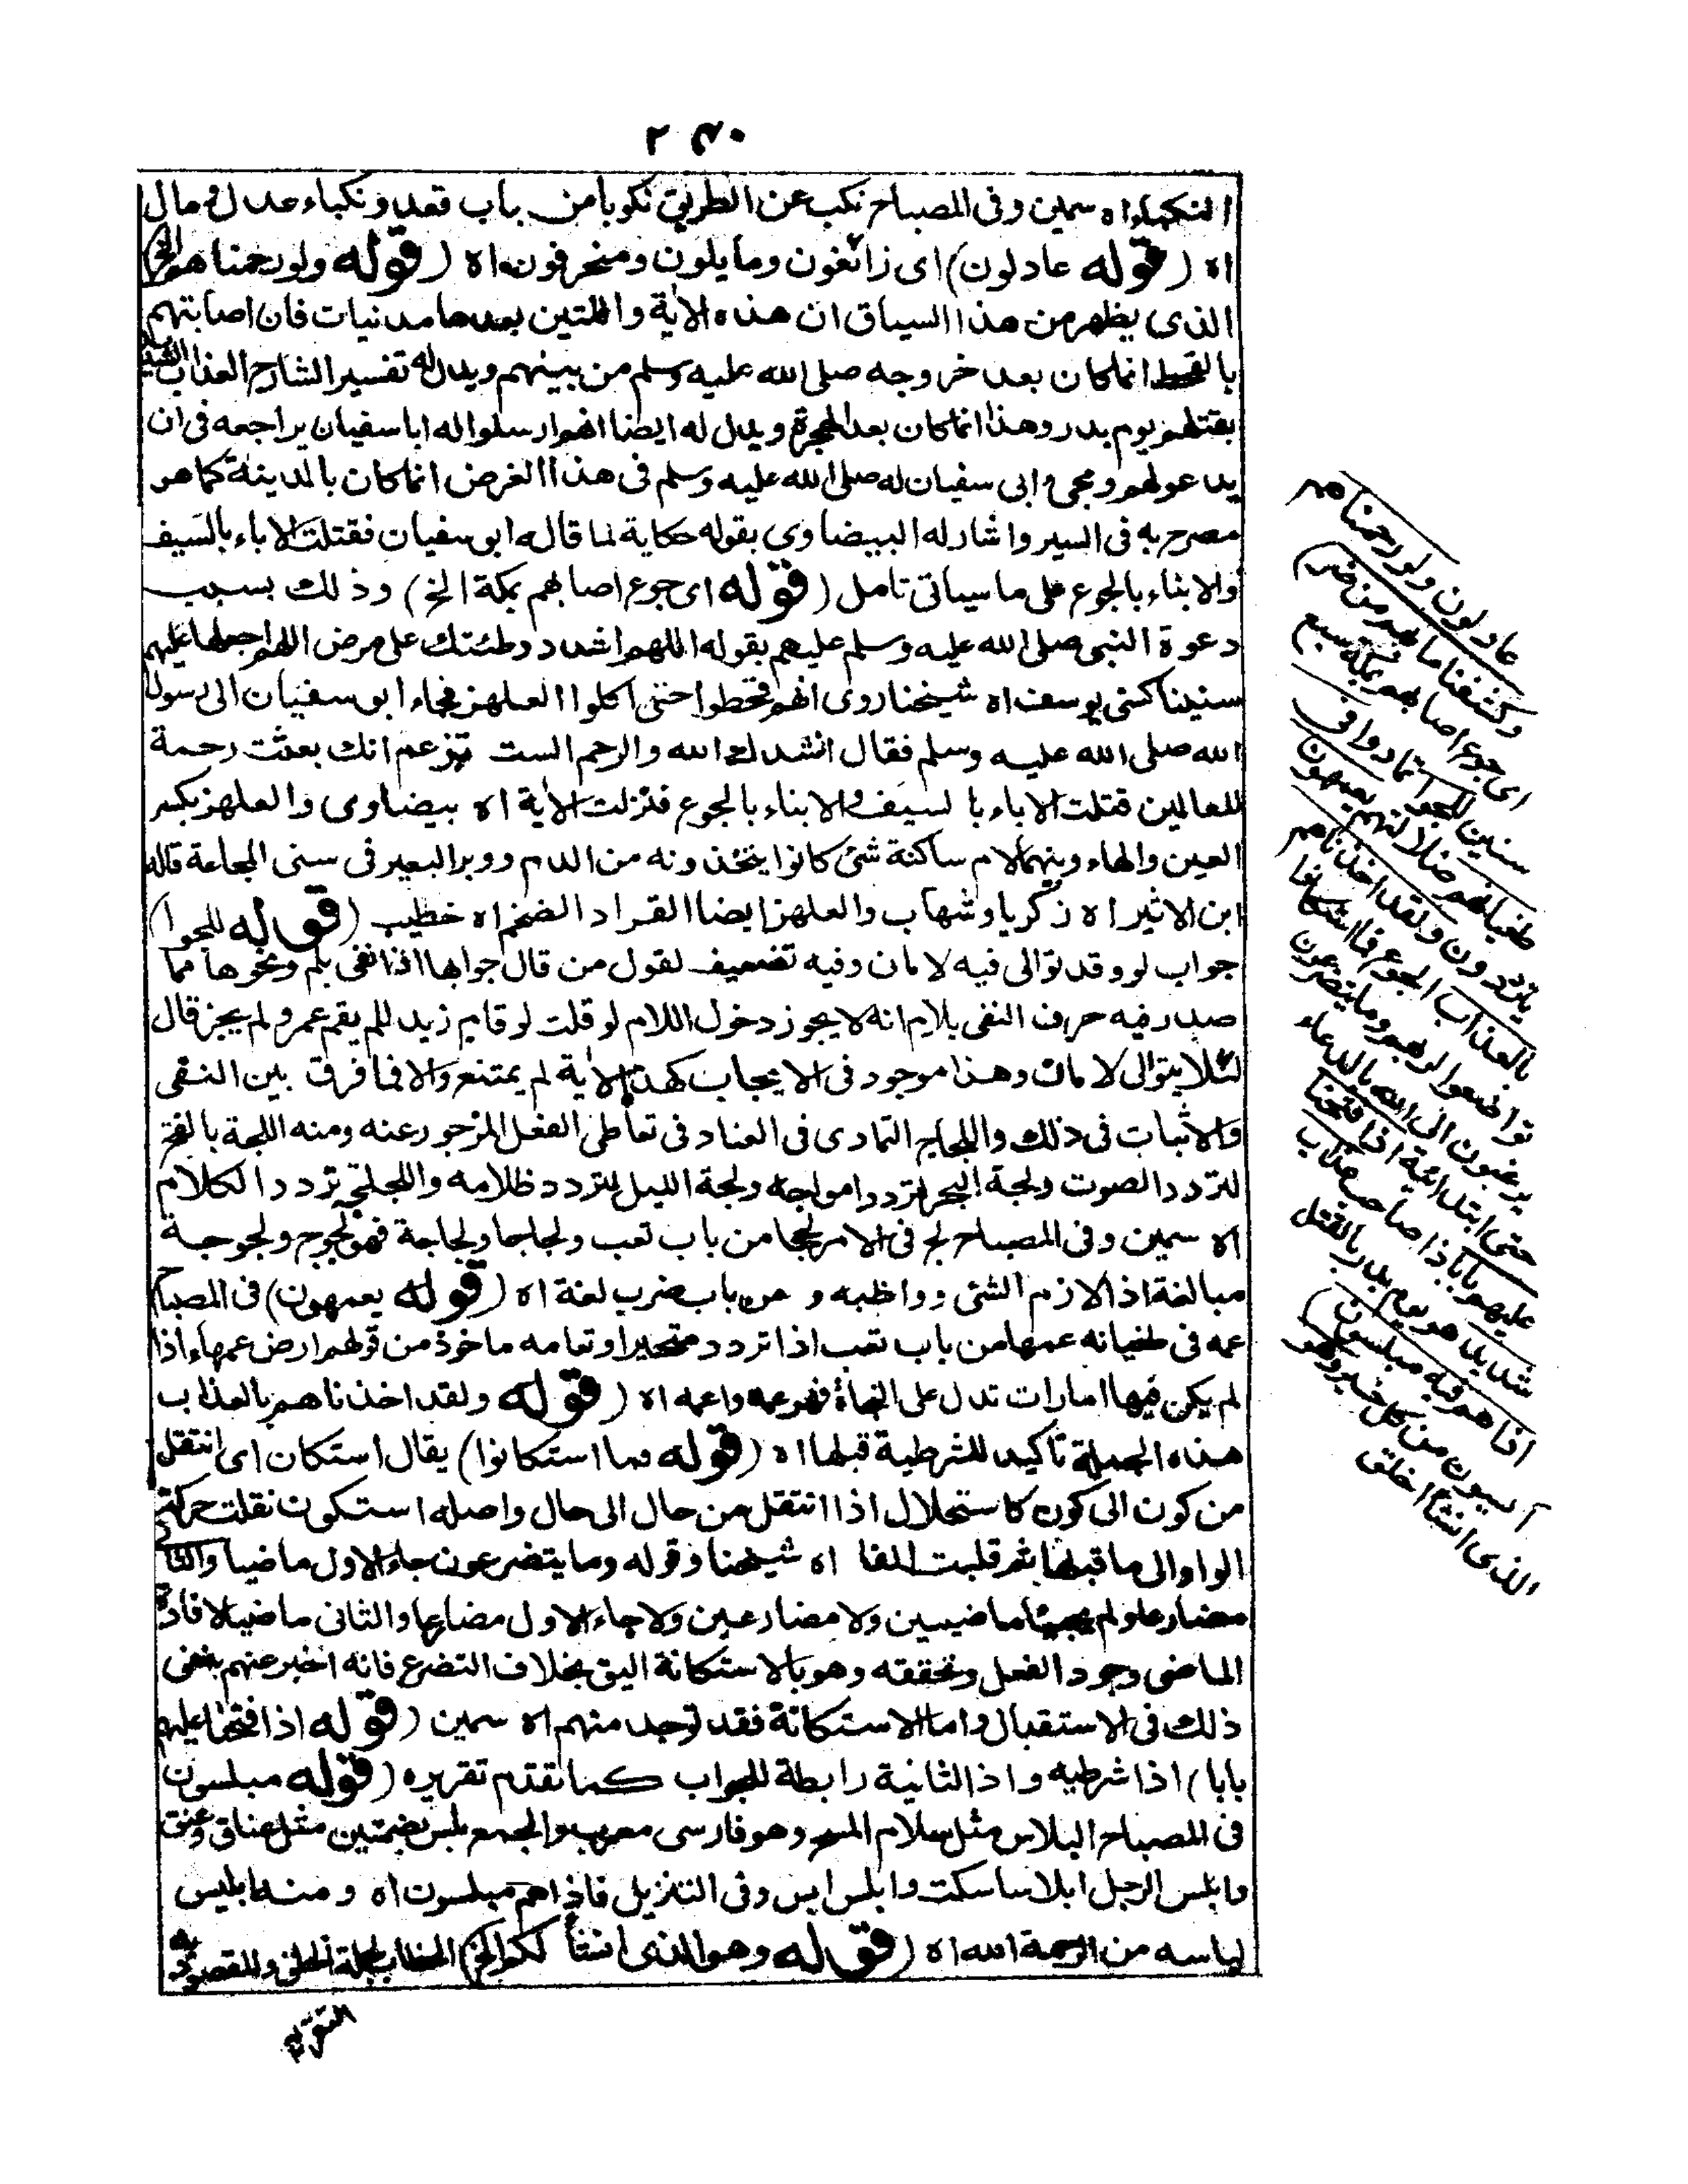 ٢٣٠
النكباء اه سمين وفى المصباح نكب عن الطريق نكوبا من باب قعد ونكباء عدل ومال
اه (قوله عادلون) اى زائغون ومايلون ومنحرفون اه (قوله ولو رحمناهم الخ)
الذى يظهر من هذا السياق ان هذه الاية واللتين بعدها مدنيات فان اصابتهم
بالقحط انما كان بعد خروجه صلى الله عليه وسلم من بينهم ويدل له تفسير الشارح العذاب الشديد
بقتلهم يوم بدر وهذا انما كان بعد الهجرة ويدل له ايضا انهم ارسلوا له ابا سفيان يراجعه فى ان
يدعو لهم ومجئ ابى سفيان له صلى الله عليه وسلم فى هذا الغرض انما كان بالمدينة كما هو
مصرح به فى السير واشار له البيضاوى بقوله حكاية لما قاله ابو سفيان فقتلت الاباء بالسيف
والابناء بالجوع على ما سياتى تامل (قوله اى جوع اصابهم بمكة الخ) وذلك بسبب
دعوة النبى صلى الله عليه وسلم عليهم بقوله اللهم اشدد وطئتك على مرض اللهم اجعلها عليهم
سنينا كسنى يوسف اه شيخنا روى انهم قحطوا حتى اكلوا العلهز فجاء ابو سفيان الى رسول
الله صلى الله عليه وسلم فقال انشدك الله والرحم الست تزعم انك بعثت رحمة
للعالمين قتلت الاباء بالسيف والابناء بالجوع فنزلت الاية اه بيضاوى والعلهز بكسر
العين والهاء وبينهما لام ساكنة شئ كانوا يتخذونه من الدم ووبر البعير فى سنى المجاعة قاله
ابن الاثير اه زكريا وشهاب والعلهز ايضا القراد الضخم اه خطيب (قوله للجوا)
جواب لو وقد توالى فيه لامان وفيه تضعيف لقول من قال جوابها اذا نفى بلم ونحوها مما
صدر فيه حرف النفى بلام انه لا يجوز دخول اللام لو قلت لو قام زيد للم يقم عمرو لم يجز قال
لئلا يتوالى لامان وهذا موجود فى الايجاب كهذه الاية لم يمتنع والا فما فرق بين النفى
والاثبات فى ذلك واللجاج التمادى فى العناد فى تعاطى الفعل المزجور عنه ومنه اللجة بالفتح
لتردد الصوت ولجة البحر لتردد امواجه ولجة الليل لتردد ظلامه واللجلجة تردد الكلام
اه سمين وفى المصباح لج فى الامر لججا من باب تعب ولجاجا ولجاجة فهو لجوج ولجوجة
مبالغة اذا لازم الشئ وواظبه ومن باب ضرب لغة اه (قوله يعمهون) فى المصباح
عمه فى طغيانه عمها من باب تعب اذا تردد متحيرا وتعامه ماخوذ من قولهم ارض عمهاء اذا
لم يكن فيها امارات تدل على النجاة فهو عمه واعمه اه (قوله ولقد اخذناهم بالعذاب
هذه الجملة تاكيد للشرطية قبلها اه (قوله فما استكانوا) يقال استكان اى انتقل
من كون الى كون كاستحلال اذا انتقل من حال الى حال واصله استكون نقلت حركة
الواو الى ما قبلها ثم قلبت الفا اه شيخنا وقوله وما يتضرعون جاء الاول ماضيا والثانى
مضارعا ولم يجيئا ماضيين ولا مضارعين ولا جاء الاول مضارعا والثانى ماضيا لافادة
الماضى وجود الفعل وتحققه وهو بالاستكانة اليق بخلاف التضرع فانه اخبر عنهم بنفى
ذلك فى الاستقبال واما الاستكانة فقد توجد منهم اه سمين (قوله اذا فتحنا عليهم
بابا) اذا شرطيه واذا الثانية رابطة للجواب كما تقدم تقريره (قوله مبلسون
فى المصباح البلاس مثل سلام المسح وهو فارسى معرب والجمع بلس بضمتين مثل عناق وعنق
وابلس الرجل ابلاسا سكت وابلس ايس وفى التنزيل فاذا هم مبلسون اه ومنه ابليس
لياسه من الرحمة الله اه (قوله وهو الذى انشأ لكم الخ) الخطاب لجملة الخلق والمقصود به
التقريع
عادلون ولو رحمناهم
وكشفنا ما بهم من ضر)
اى جوع اصابهم بمكة سبع
سنين للجوا تمادوا فى
طغيانهم ضلالتهم يعمهون
يترددون ولقد اخذناهم
بالعذاب الجوع فما استكانوا
تواضعوا لربهم وما يتضرعون
يرغبون الى الله بالدعاء
حتى ابتدائية اذا فتحنا
عليهم بابا ذا صاحب عذاب
شديد هو يوم بدر بالقتل
اذا هم فيه مبلسون)
آيسون من كل خير وهو
الذى انشأ خلق